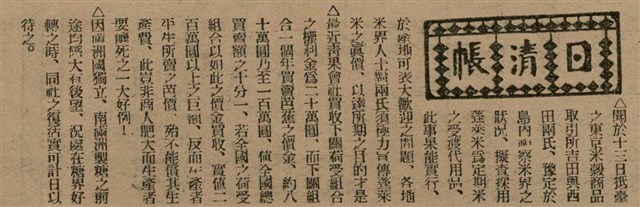 日清帳
△關於十三日抵臺
之東京米穀商品
取引所吉田與西
田兩氏、豫定於
島內視察米界之
狀況、擬査採用
蓬萊米爲定期米
之受渡代用品、
此事果能實行、
於產地可表大歡迎之問題、各地
米界人士對兩氏須極力宣傳蓬萊
米之眞價、以達所期之目的才是
△最近靑果會社買收下關荷受組合
之權利金爲二十萬圓、而下關組
合一個年買賣芭蕉之價金、約八
十萬圓乃至一百萬圓、値全國總
買賣額之十分一、若全國之荷受
組合以如此之價金買收、實値二
百萬圓以上之巨額、反而生產者
平生所賣之芭價、殆不能償其生
產費、此豈非商人肥大而生產者
要瘦死之一大好例！
△因滿洲國獨立、南滿洲製糖之前
途均感大有後望、況處在糖界好
轉之時、同社之復活實可計日以
待之。